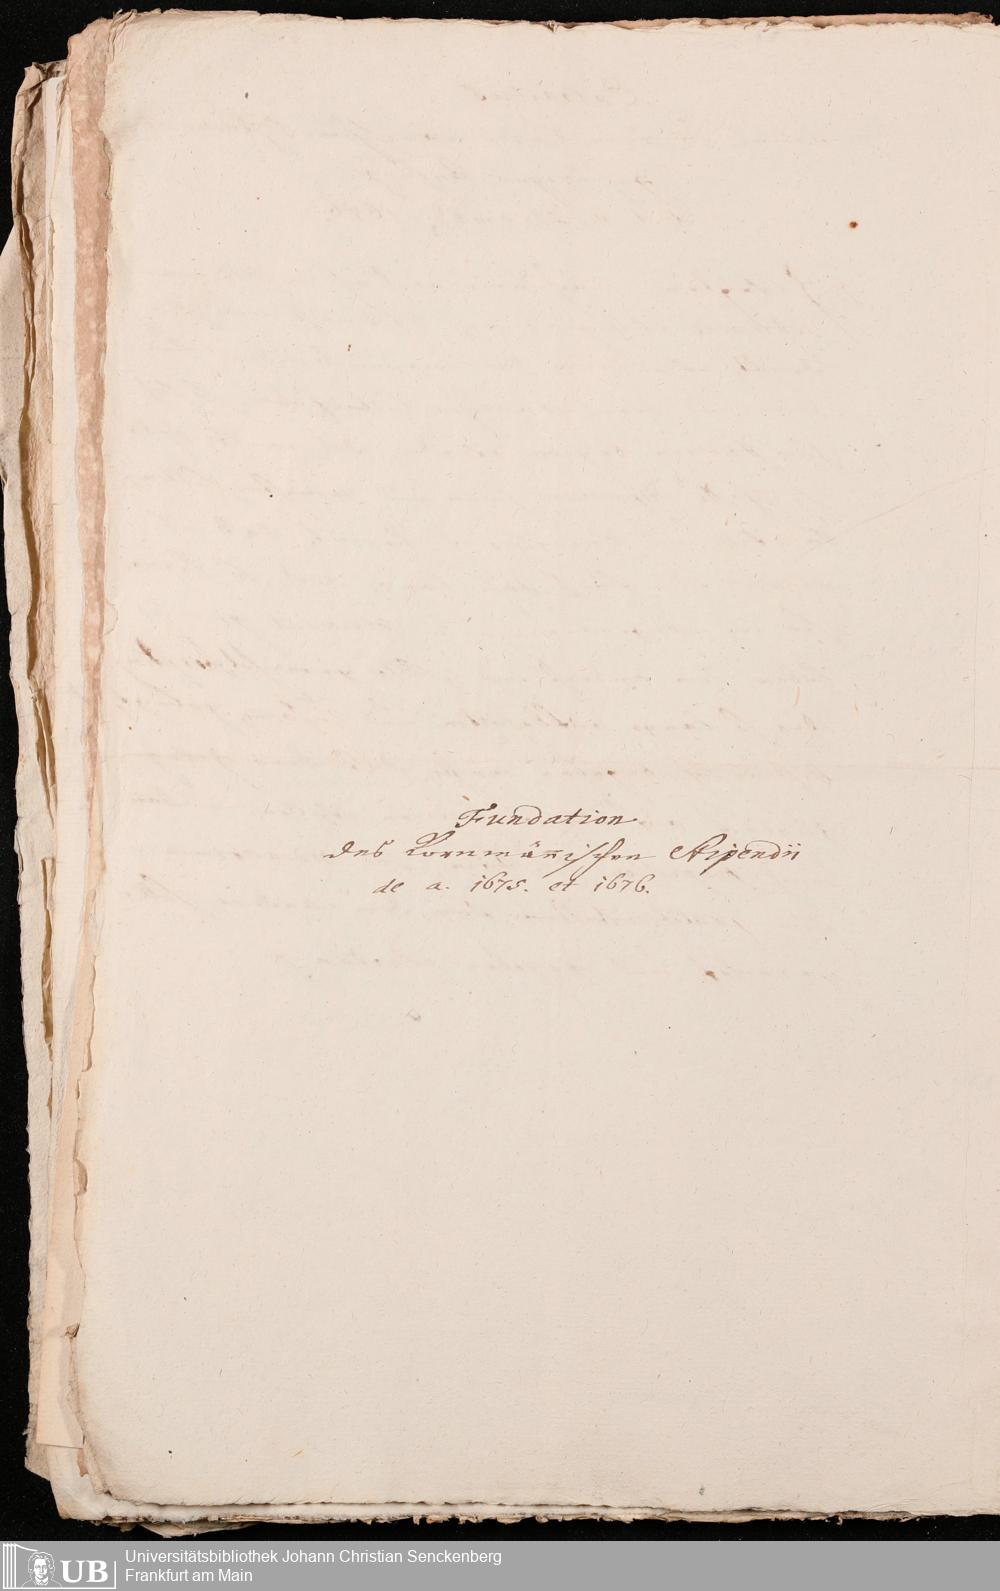 Fundation
des Kornmäñischen Stipendii
de a. 1675. et 1676.
UB
Universitätsbibliothek Johann Christian Senckenberg
Frankfurt am Main